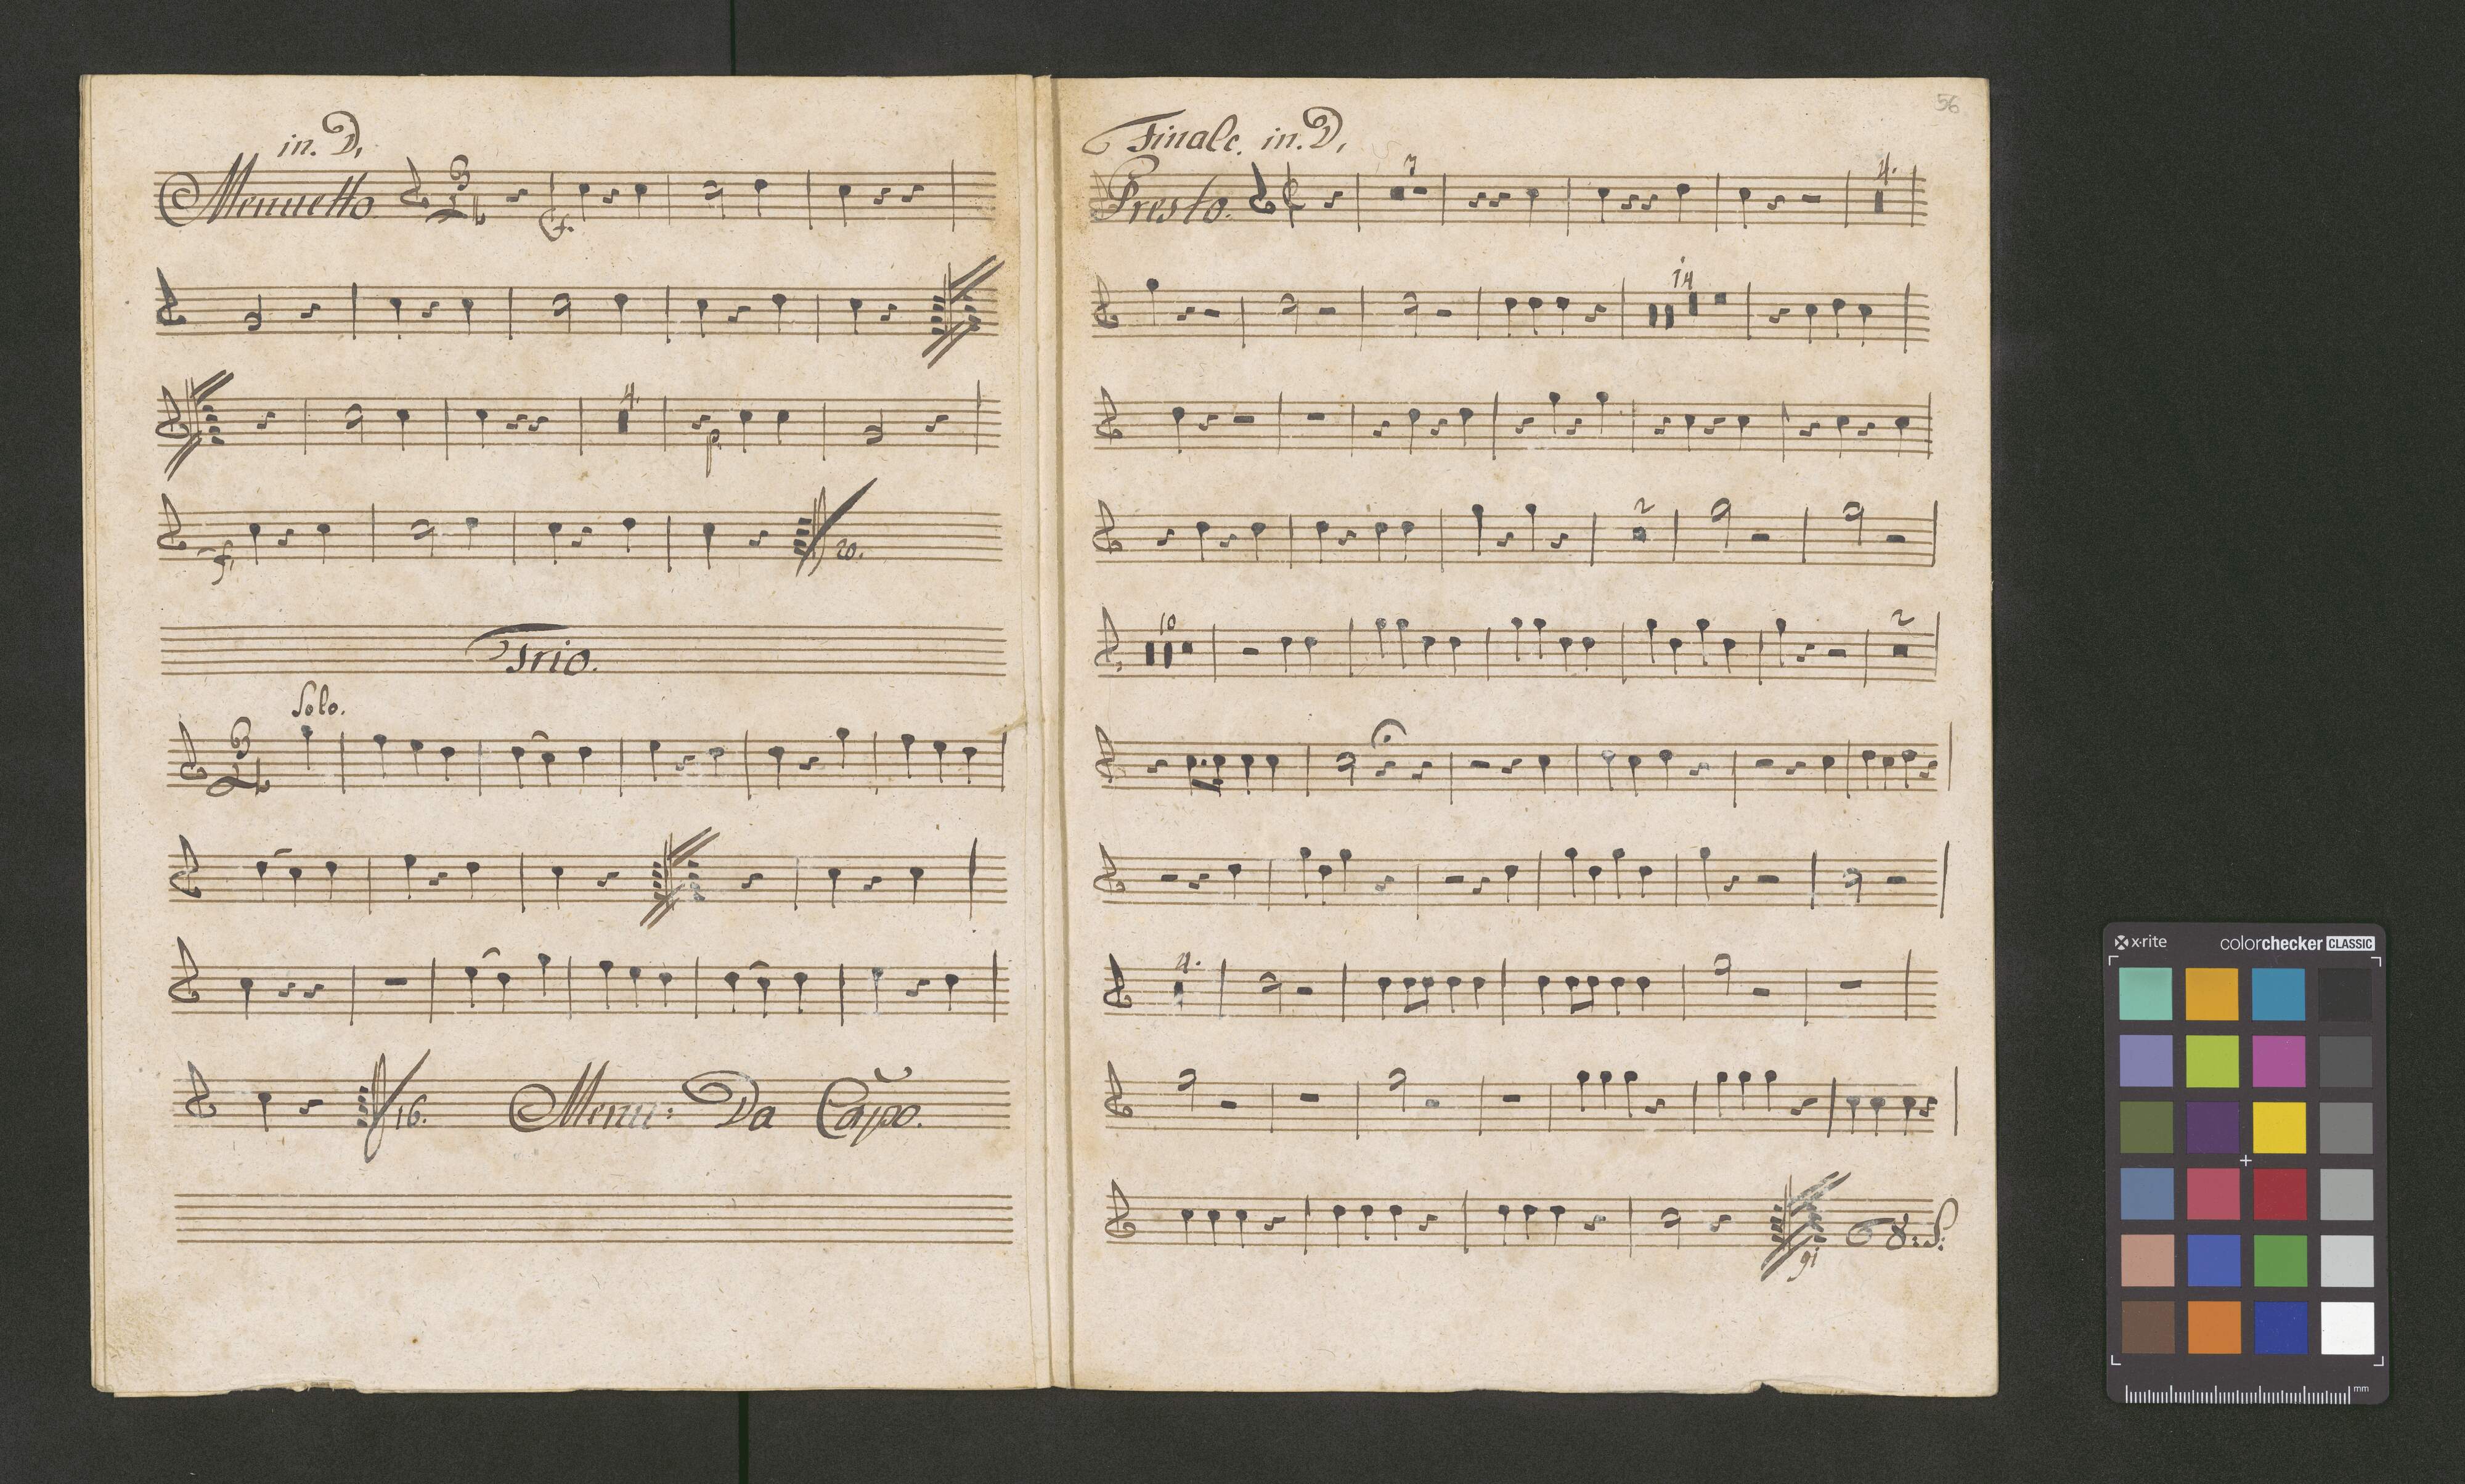 in. D,
Menuetto 3 4
f.
4
p
f.
20.
Trio.
Solo.
3 4
16. Menu: Da Capo.
56
Finale. in. D,
Presto.
3
4.
14
2
10
2
4.
91
x·rite colorchecker CLASSIC
mm